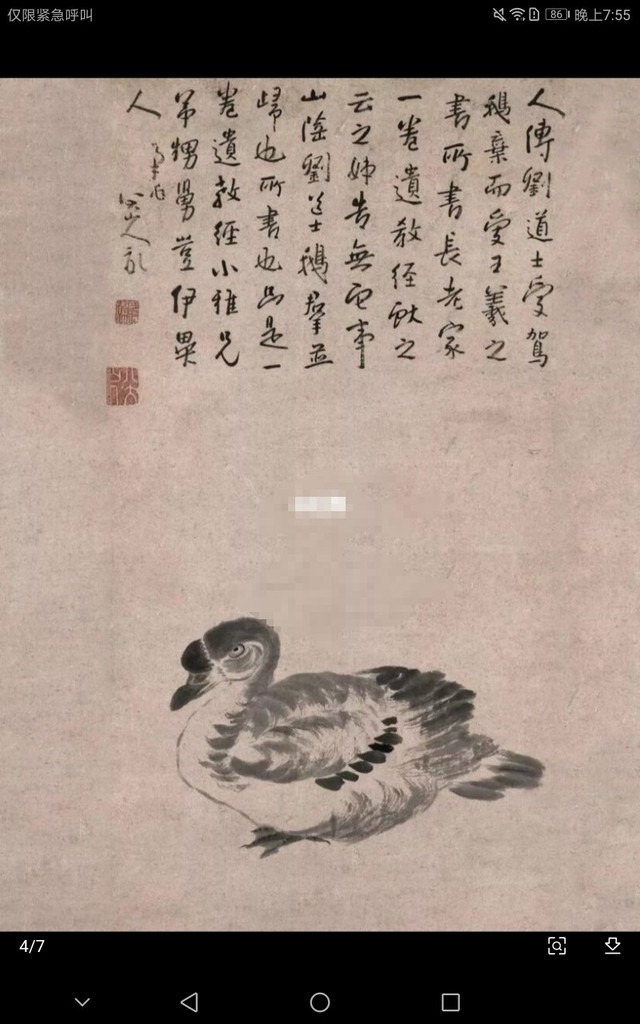 仅限紧急呼叫
86
晚上7:55
人傳劉道士愛駕
鵝棄而愛王羲之
書所書長老家
一卷遺教經獻之
云之姊告無它事
山陰劉道士鵝羣並
歸也所書也只是一
卷遺教經小雅兄
弟甥舅豈伊異
人
八大山人記
4/7